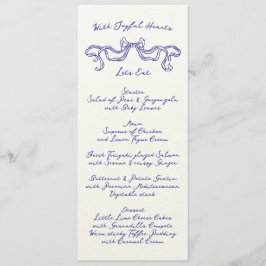 With Joyful Hearts
Lets Eat
Starter
Salad of Pear & Gorgonzola
with Baby Leaves
Main
Supreme of Chicken
and Lemon Thyme Cream
Fresh Teriyaki glazed Salmon
with Sesame & Ginger
Butternut & Potato Gratin
with Pecorino, Mediterranean
Vegetable stack
Dessert
Little Lime Cheese Cakes
with Granadilla Compote
Warm sticky Toffee Pudding
with Caramel Cream